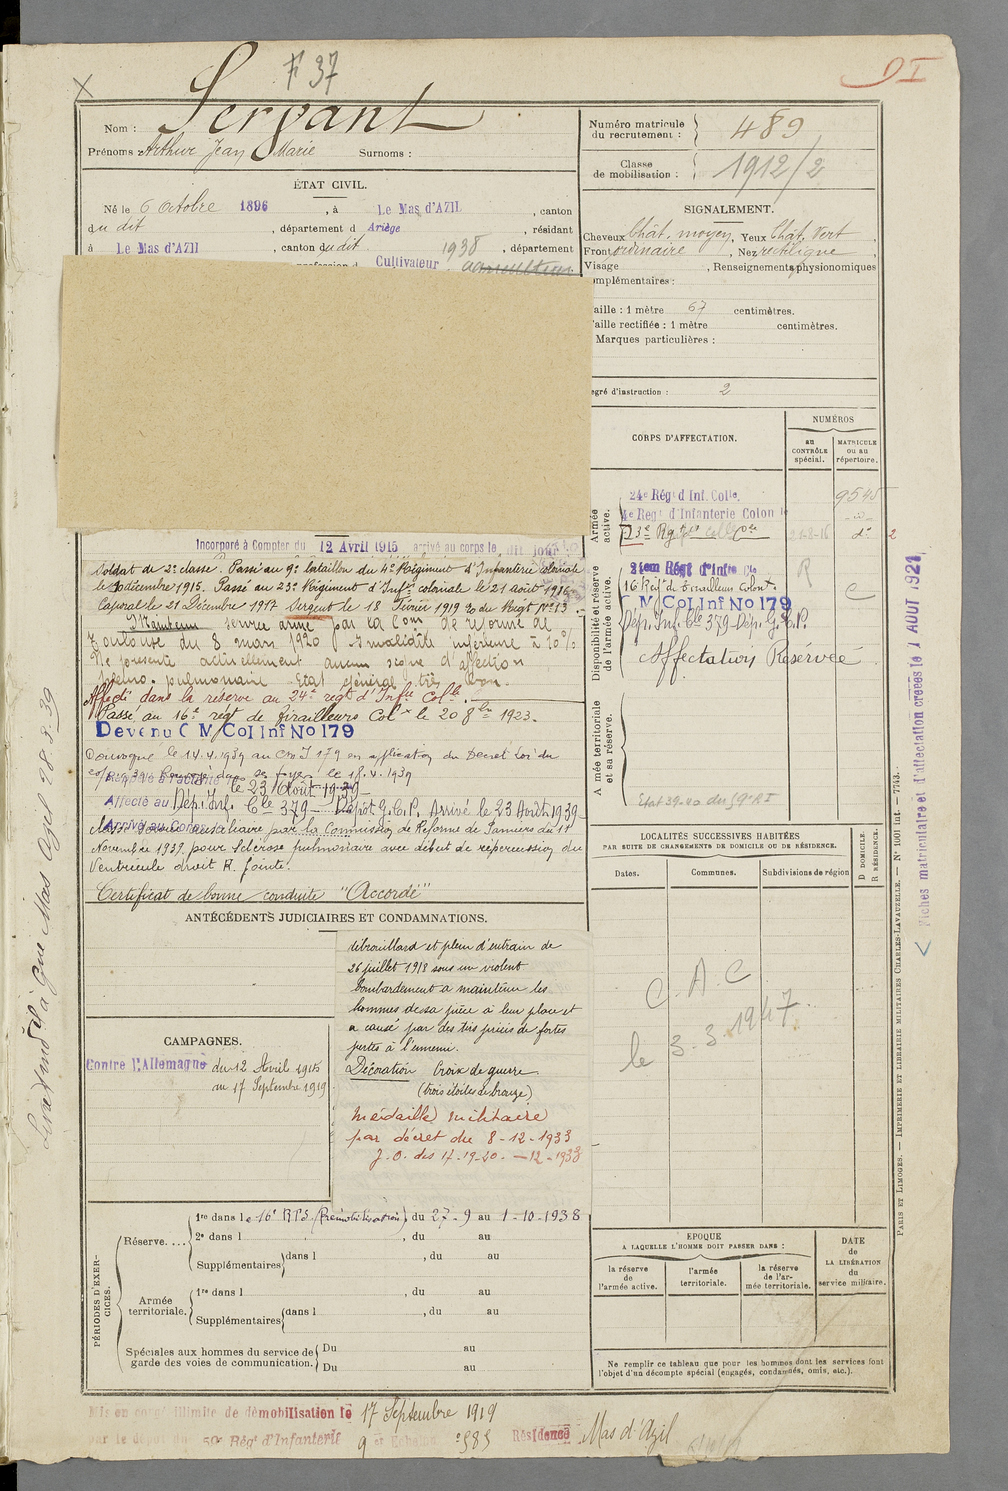 F 37
Nom : Servant
Prénoms : Arthur Jean Marie Surnoms :
Numéro matricule du recrutement : 489
Classe de mobilisation : 1912/2
ÉTAT CIVIL.
Né le 6 Octobre 1896, à Le Mas d'AZIL, canton
du dit, département d Ariège, résidant
à Le Mas d'AZIL, canton du dit 1938, département
Cultivateur
SIGNALEMENT.
Cheveux Chât. moyen, Yeux Chât. Vert,
Front ordinaire, Nez rectiligne
Visage , Renseignements physionomiques
omplémentaires :
aille : 1 mètre 67 centimètres.
aille rectifiée : 1 mètre centimètres.
Marques particulières :
egré d'instruction : 2
CORPS D'AFFECTATION.
NUMÉROS
au CONTRÔLE spécial.
MATRICULE ou au répertoire.
Armée active.
24e Régt d'Inf. Colle. 9545
4e Regt d'Infanterie Colon le
23e Rgt 21-8-16 do 2
Disponibilité et réserve de l'armée active.
24em Régt d'Infie Cle R
16 Régt de tirailleurs Colonx C
M/Col Inf No 179
Dépt Inf. Cle 379 Dép. G.C.P.
Affectation Réservée
A mée territoriale et sa réserve.
Incorporé à Compter du 12 Avril 1915 arrivé au corps le dit jour
Soldat de 2e classe. Passé au 9e bataillon du 4e Régiment d'Infanterie coloniale
le décembre 1915. Passé au 23e Régiment d'Infie coloniale le 21 août 1916
Caporal le 21 Décembre 1917 Sergent le 18 Février 1919 de Regt No 13
Maintenu service armé par la Com. de réforme de
Toulouse du 8 mars 1920 Invalidité inférieure à 10%
Ne présente actuellement aucun signe d'affection
pulmonaire Etat général très bon.
Affecté dans la réserve au 24e régt d'Infie Colle.
Passé au 16e régt de tirailleurs Colx le 20 8bre 1923.
Devenu C M/Col Inf No 179
Convoqué le 14.4.1939 au 179 en application du Décret Loi du
le 18.4.1939
le 23 Août 1939
Affecté au Dépt Inf. Cle 379 Dépôt G.C.P. Arrivé le 23 Août 1939
par la Commission de Réforme de Pamiers du 11
Novembre 1939 pour Sclérose pulmonaire avec début de répercussion du
Ventricule droit
Certificat de bonne conduite "Accordé"
ANTÉCÉDENTS JUDICIAIRES ET CONDAMNATIONS.
débrouillard et plein d'entrain de
26 juillet 1918 sous un violent
bombardement a maintenu les
hommes de sa pièce à leur place et
a causé par des tirs précis de fortes
pertes à l'ennemi.
Décoration Croix de guerre
(trois étoiles de bronze)
Médaille militaire
par décret du 8-12-1933
J.O. des 17-19-20. -12-1933
CAMPAGNES.
Contre l'Allemagne du 12 Avril 1915
au 17 Septembre 1919
LOCALITÉS SUCCESSIVES HABITÉES
PAR SUITE DE CHANGEMENTS DE DOMICILE OU DE RÉSIDENCE.
Dates. Communes. Subdivisions de région
D DOMICILE. R RÉSIDENCE.
C.A.C
le 3.3.1947
PÉRIODES D'EXERCICES.
Réserve....
1re dans le 16e RTS (Prémobilisation) du 27-9 au 1-10-1938
2e dans l , du au
Supplémentaires dans l , du au
Armée territoriale.
1re dans l , du au
Supplémentaires dans l , du au
Spéciales aux hommes du service de garde des voies de communication.
Du au
Du au
EPOQUE
A LAQUELLE L'HOMME DOIT PASSER DANS :
la réserve de l'armée active.
l'armée territoriale.
la réserve de l'armée territoriale.
DATE de LA LIBÉRATION du service militaire.
Ne remplir ce tableau que pour les hommes dont les services font
l'objet d'un décompte spécial (engagés, condamnés, omis, etc.).
Mis en congé illimité de démobilisation le 17 Septembre 1919
par le dépôt du 59e Régt d'Infanterie 9 et Echelon Résidence Mas d'Azil
PARIS ET LIMOGES. — IMPRIMERIE ET LIBRAIRIE MILITAIRES CHARLES-LAVAUZELLE. — N° 1001 int. — 7743.
Fiches matriculaire et d'affectation créées le 1 AOUT 1921